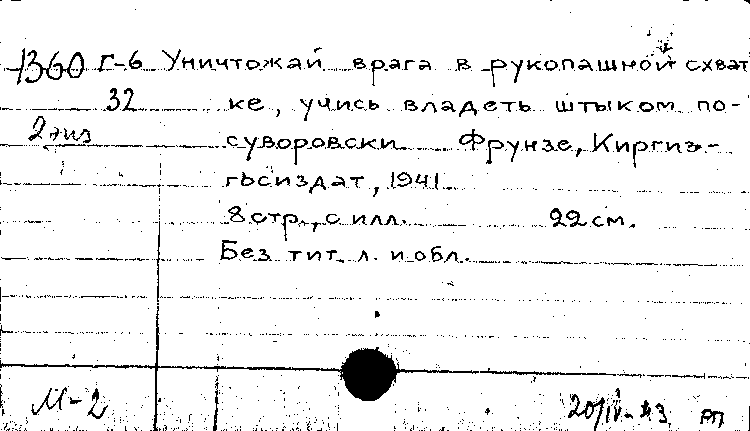 1360 Г-6 Уничтожай врага в рукопашной схват
32 ке, учись владеть штыком по-
2 экз суворовски Фрунзе, Киргиз-
гьсиздат, 1941.
8 стр., с илл. 22 см.
Без тит. л. и обл.
М-2 20/IV-43 РП